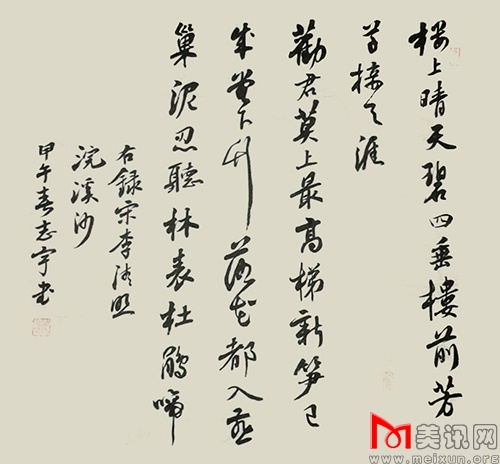 楼上晴天碧四垂樓前芳
草接天涯
勸君莫上最高梯新笋已
成堂下竹落花都入燕
巢泥忍聽林表杜鵑啼
右録宋李清照
浣溪沙
甲午春志宇书
美讯网
www.meixun.org